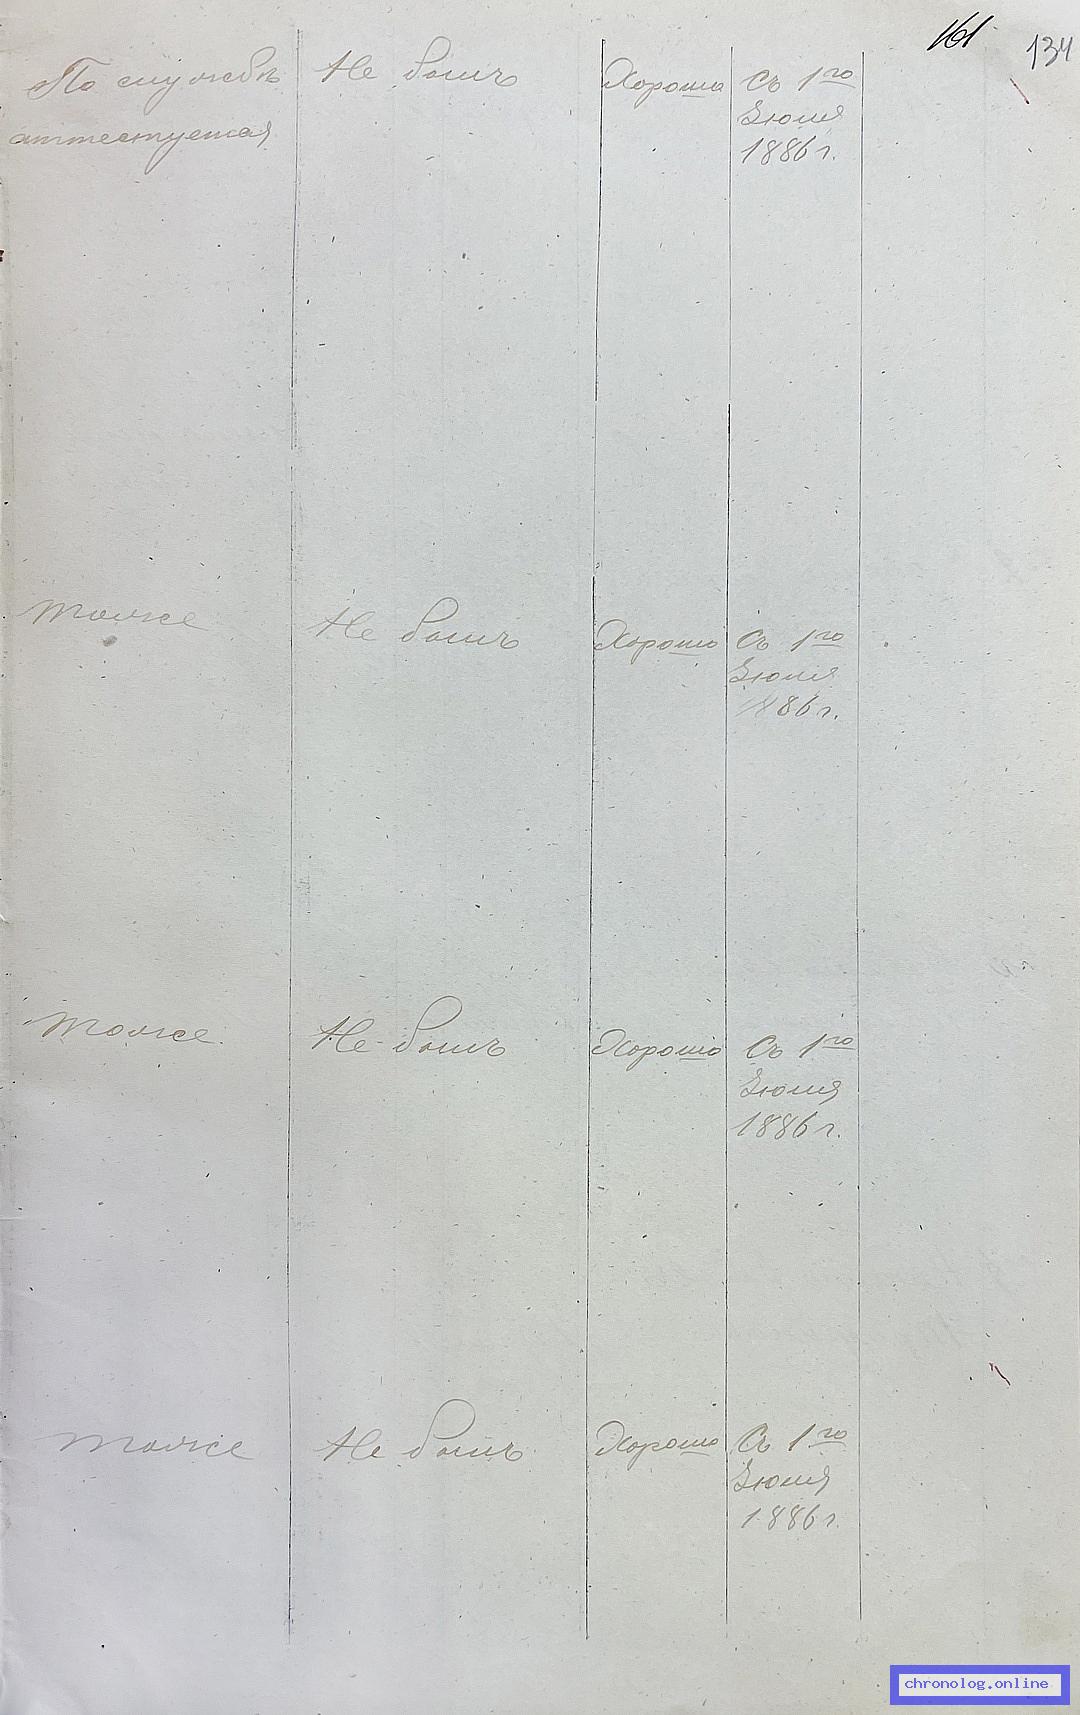 161
134
По службѣ
аттестуется
Не былъ
Хорошо
Съ 1го
Іюля
1886 г.
тоже
Не былъ
Хорошо
Съ 1го
Іюля
1886 г.
тоже
Не былъ
Хорошо
Съ 1го
Іюля
1886 г.
тоже
Не былъ
Хорошо
Съ 1го
Іюля
1886 г.
chronolog.online